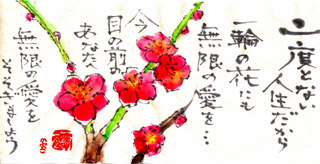 二度とない
人生だから
一輪の花にも
無限の愛を…
今
目の前の
あなたへ
無限の愛を
そそぎましょう